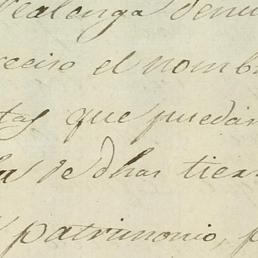 realenga denu
reciso el nombr
tas que puedan
las de dhas tierr
patrimonio, p